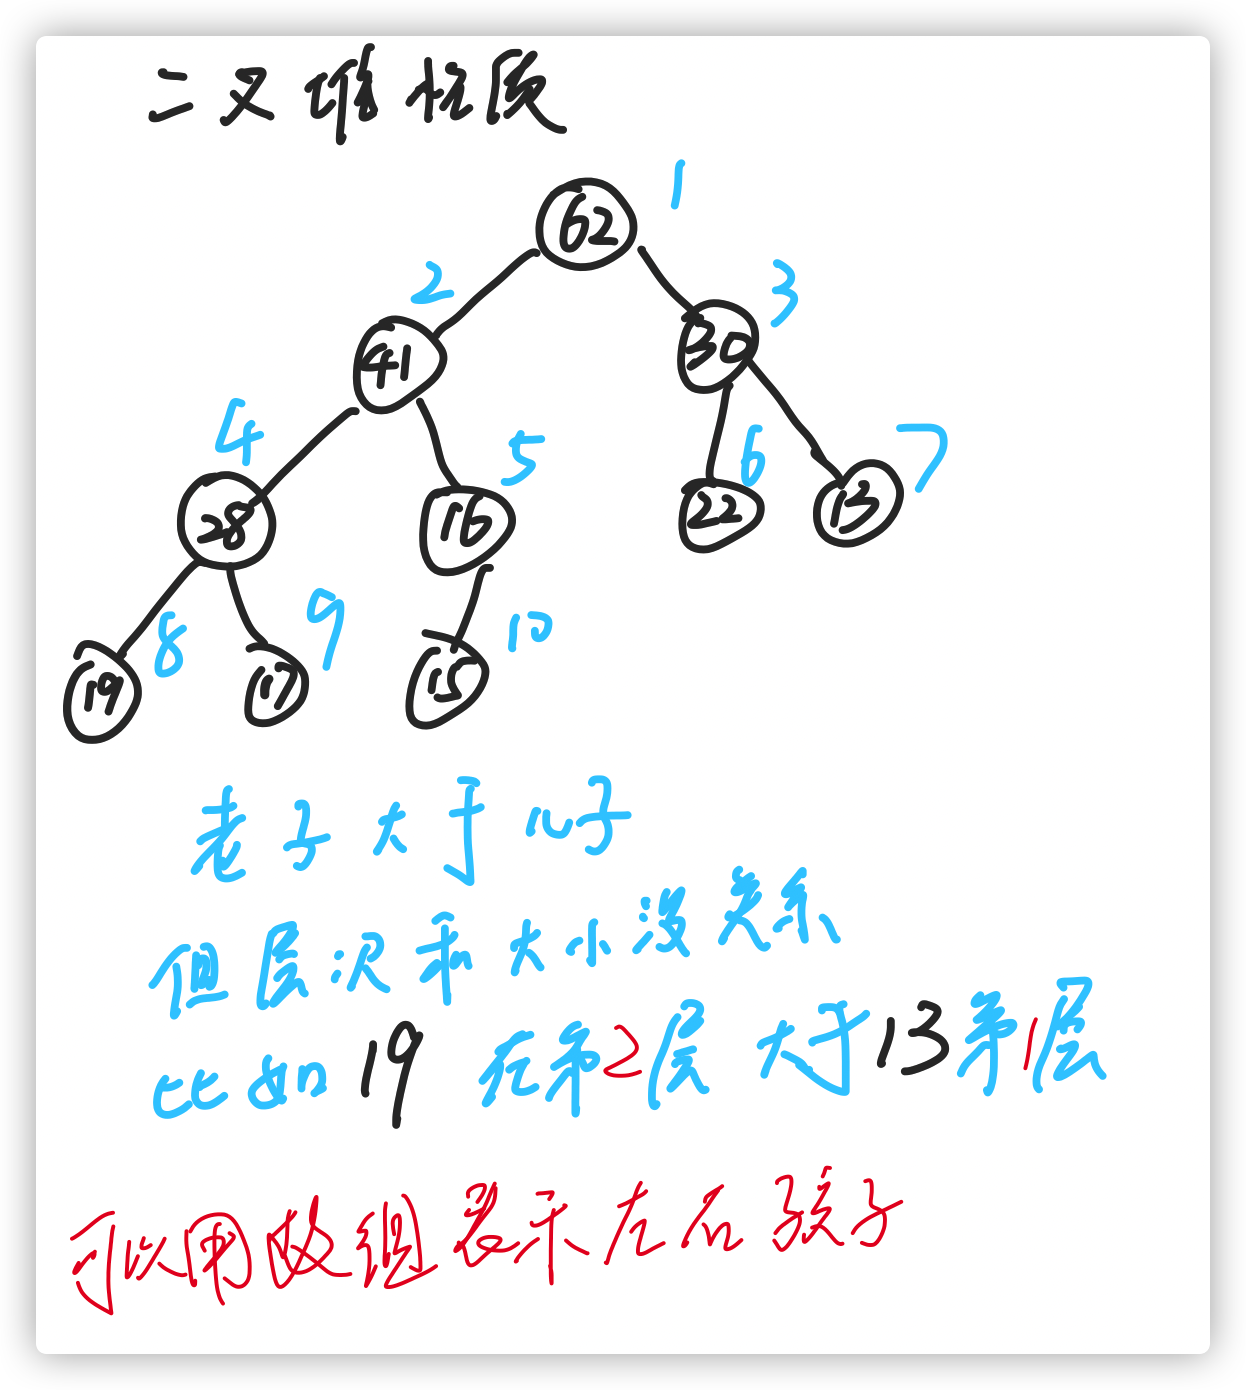 二叉堆性质
1
62
2
3
41
30
4
5
6
7
28
16
22
13
8
9
10
19
17
15
老子大于儿子
但层次和大小没关系
比如19 在第2层 大于13第1层
可以用数组表示左右孩子